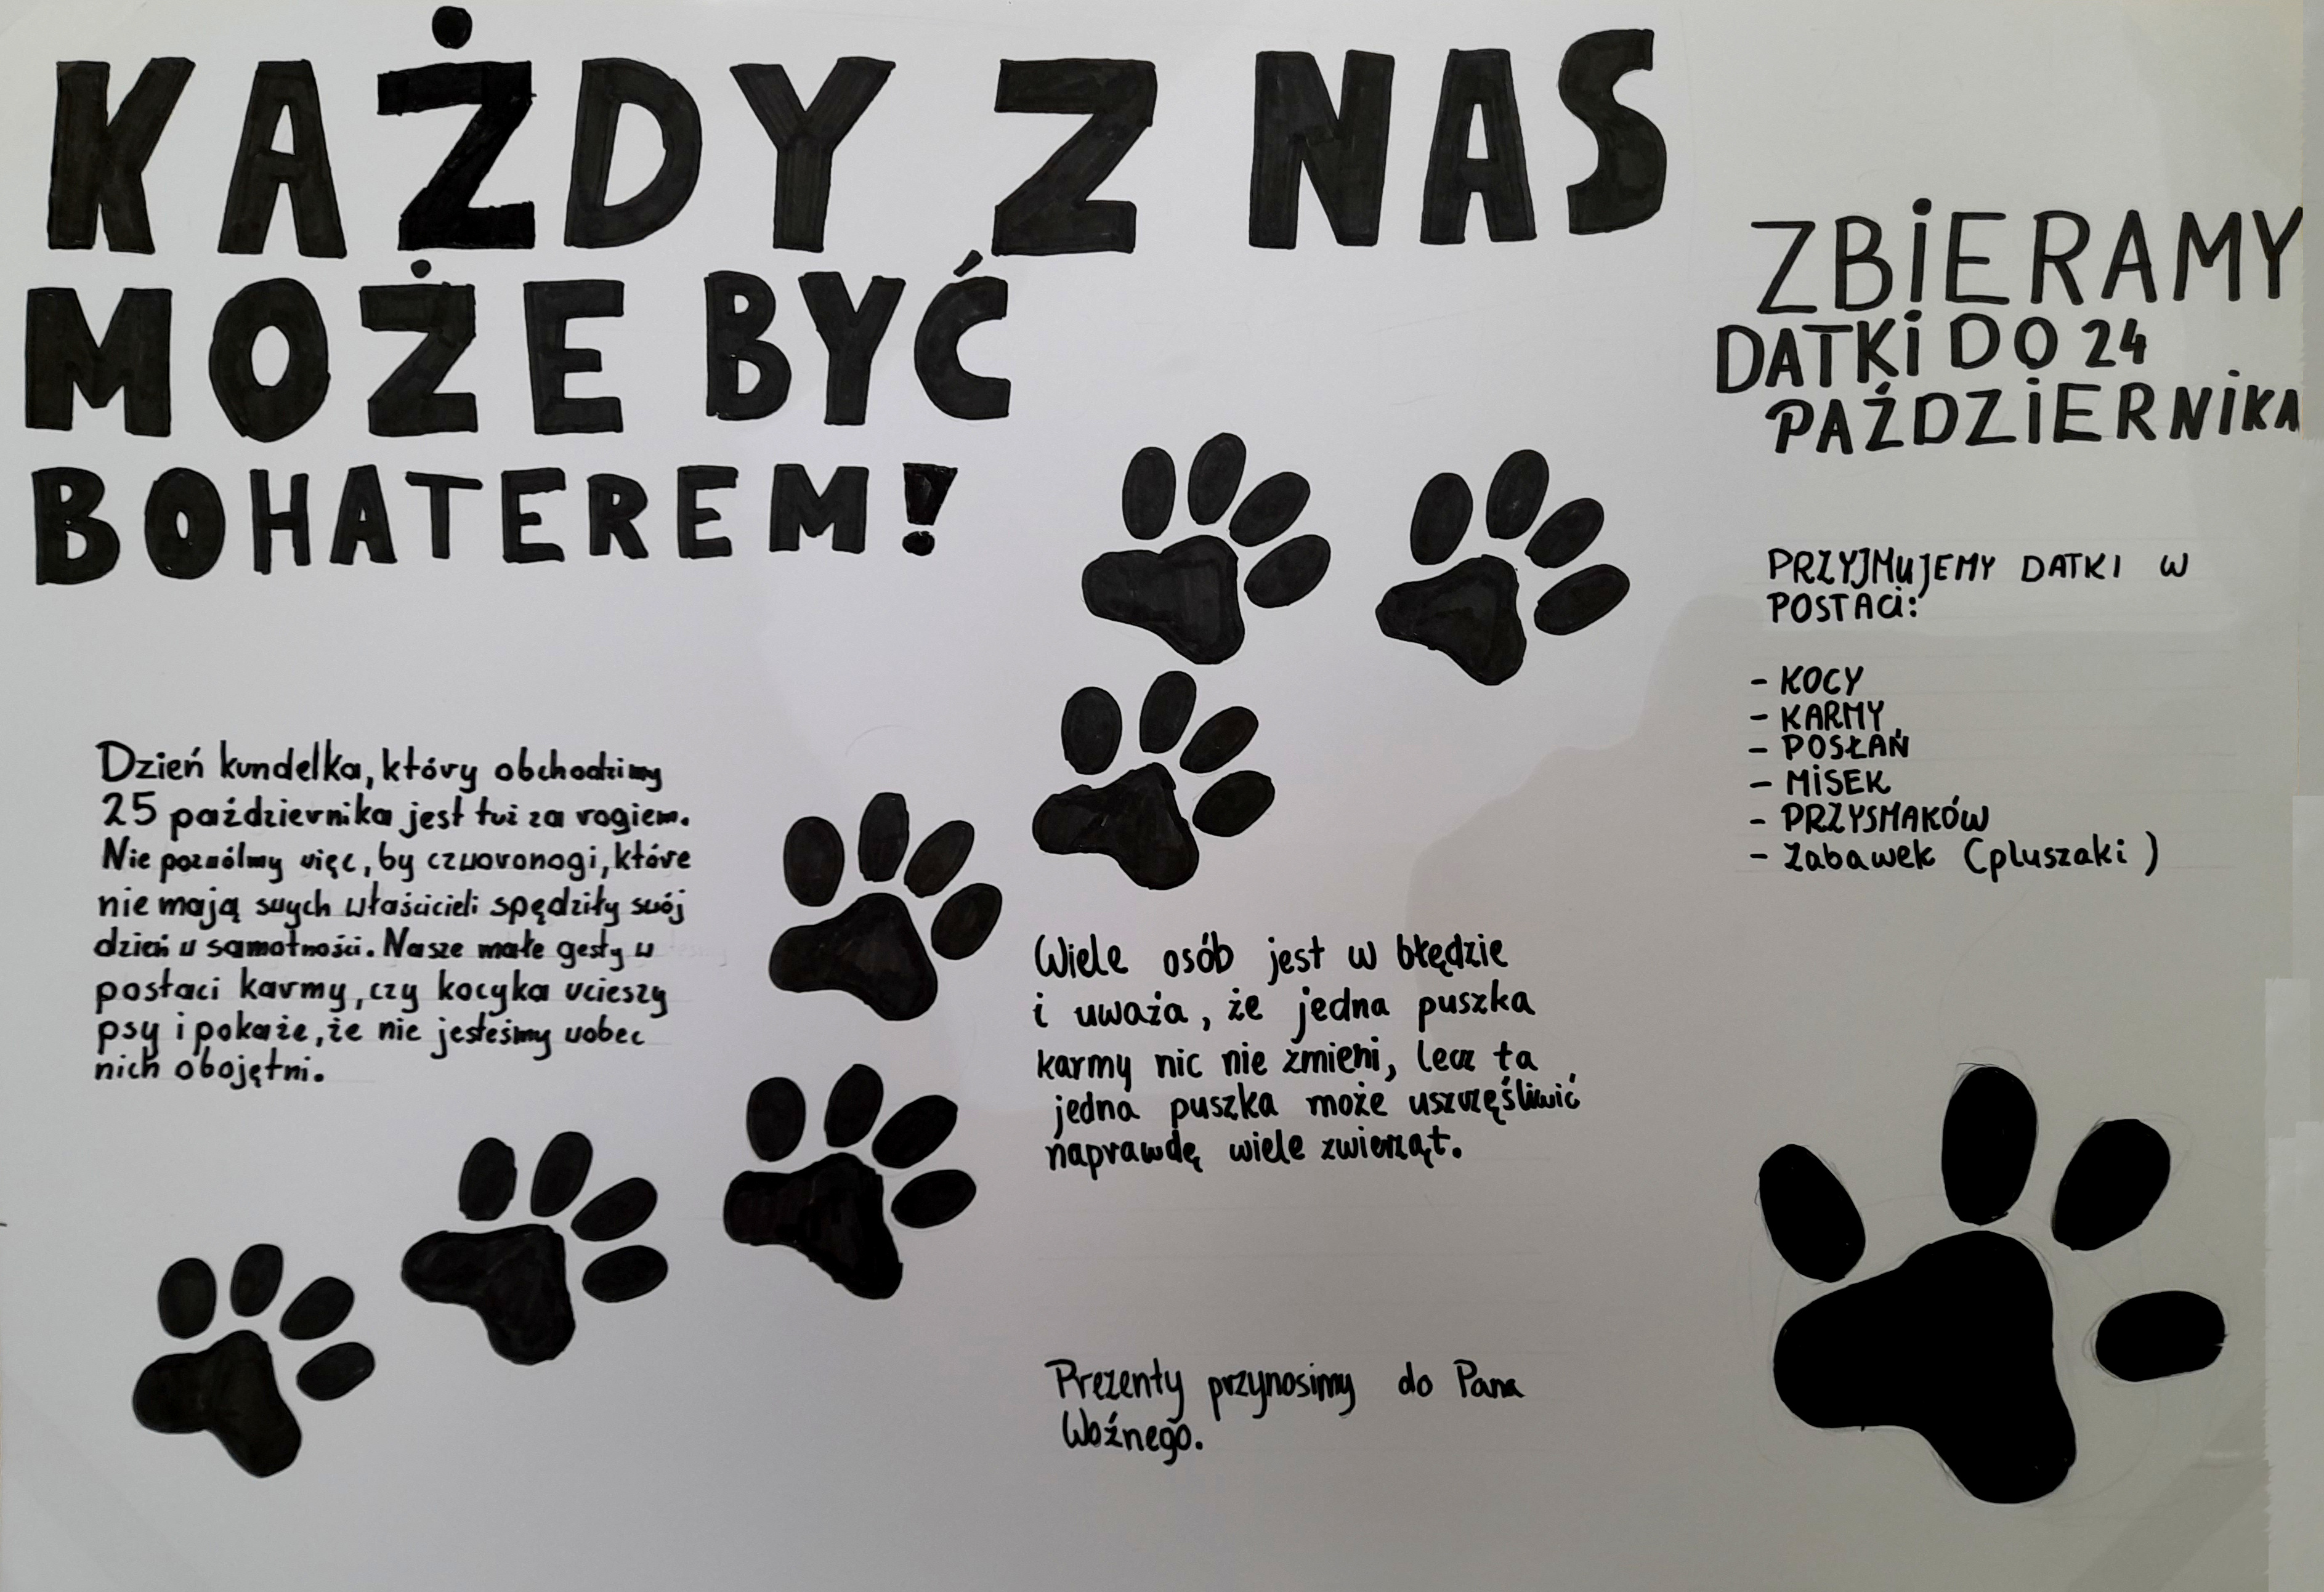 KAŻDY Z NAS
MOŻE BYĆ
BOHATEREM!
Dzień kundelka, który obchodzimy
25 października jest tuż za rogiem.
Nie pozwólmy więc, by czworonogi, które
nie mają swych właścicieli spędziły swój
dzień w samotności. Nasze małe gesty w
postaci karmy, czy kocyka ucieszy
psy i pokaże, że nie jesteśmy wobec
nich obojętni.
Wiele osób jest w błędzie
i uważa, że jedna puszka
karmy nic nie zmieni, lecz ta
jedna puszka może uszczęśliwić
naprawdę wiele zwierząt.
Prezenty przynosimy do Pana
Woźnego.
ZBIERAMY
DATKI DO 24
PAŹDZIERNIKA
PRZYJMUJEMY DATKI W
POSTACI:
- KOCY
- KARMY
- POSŁAŃ
- MISEK
- PRZYSMAKÓW
- Zabawek (pluszaki)